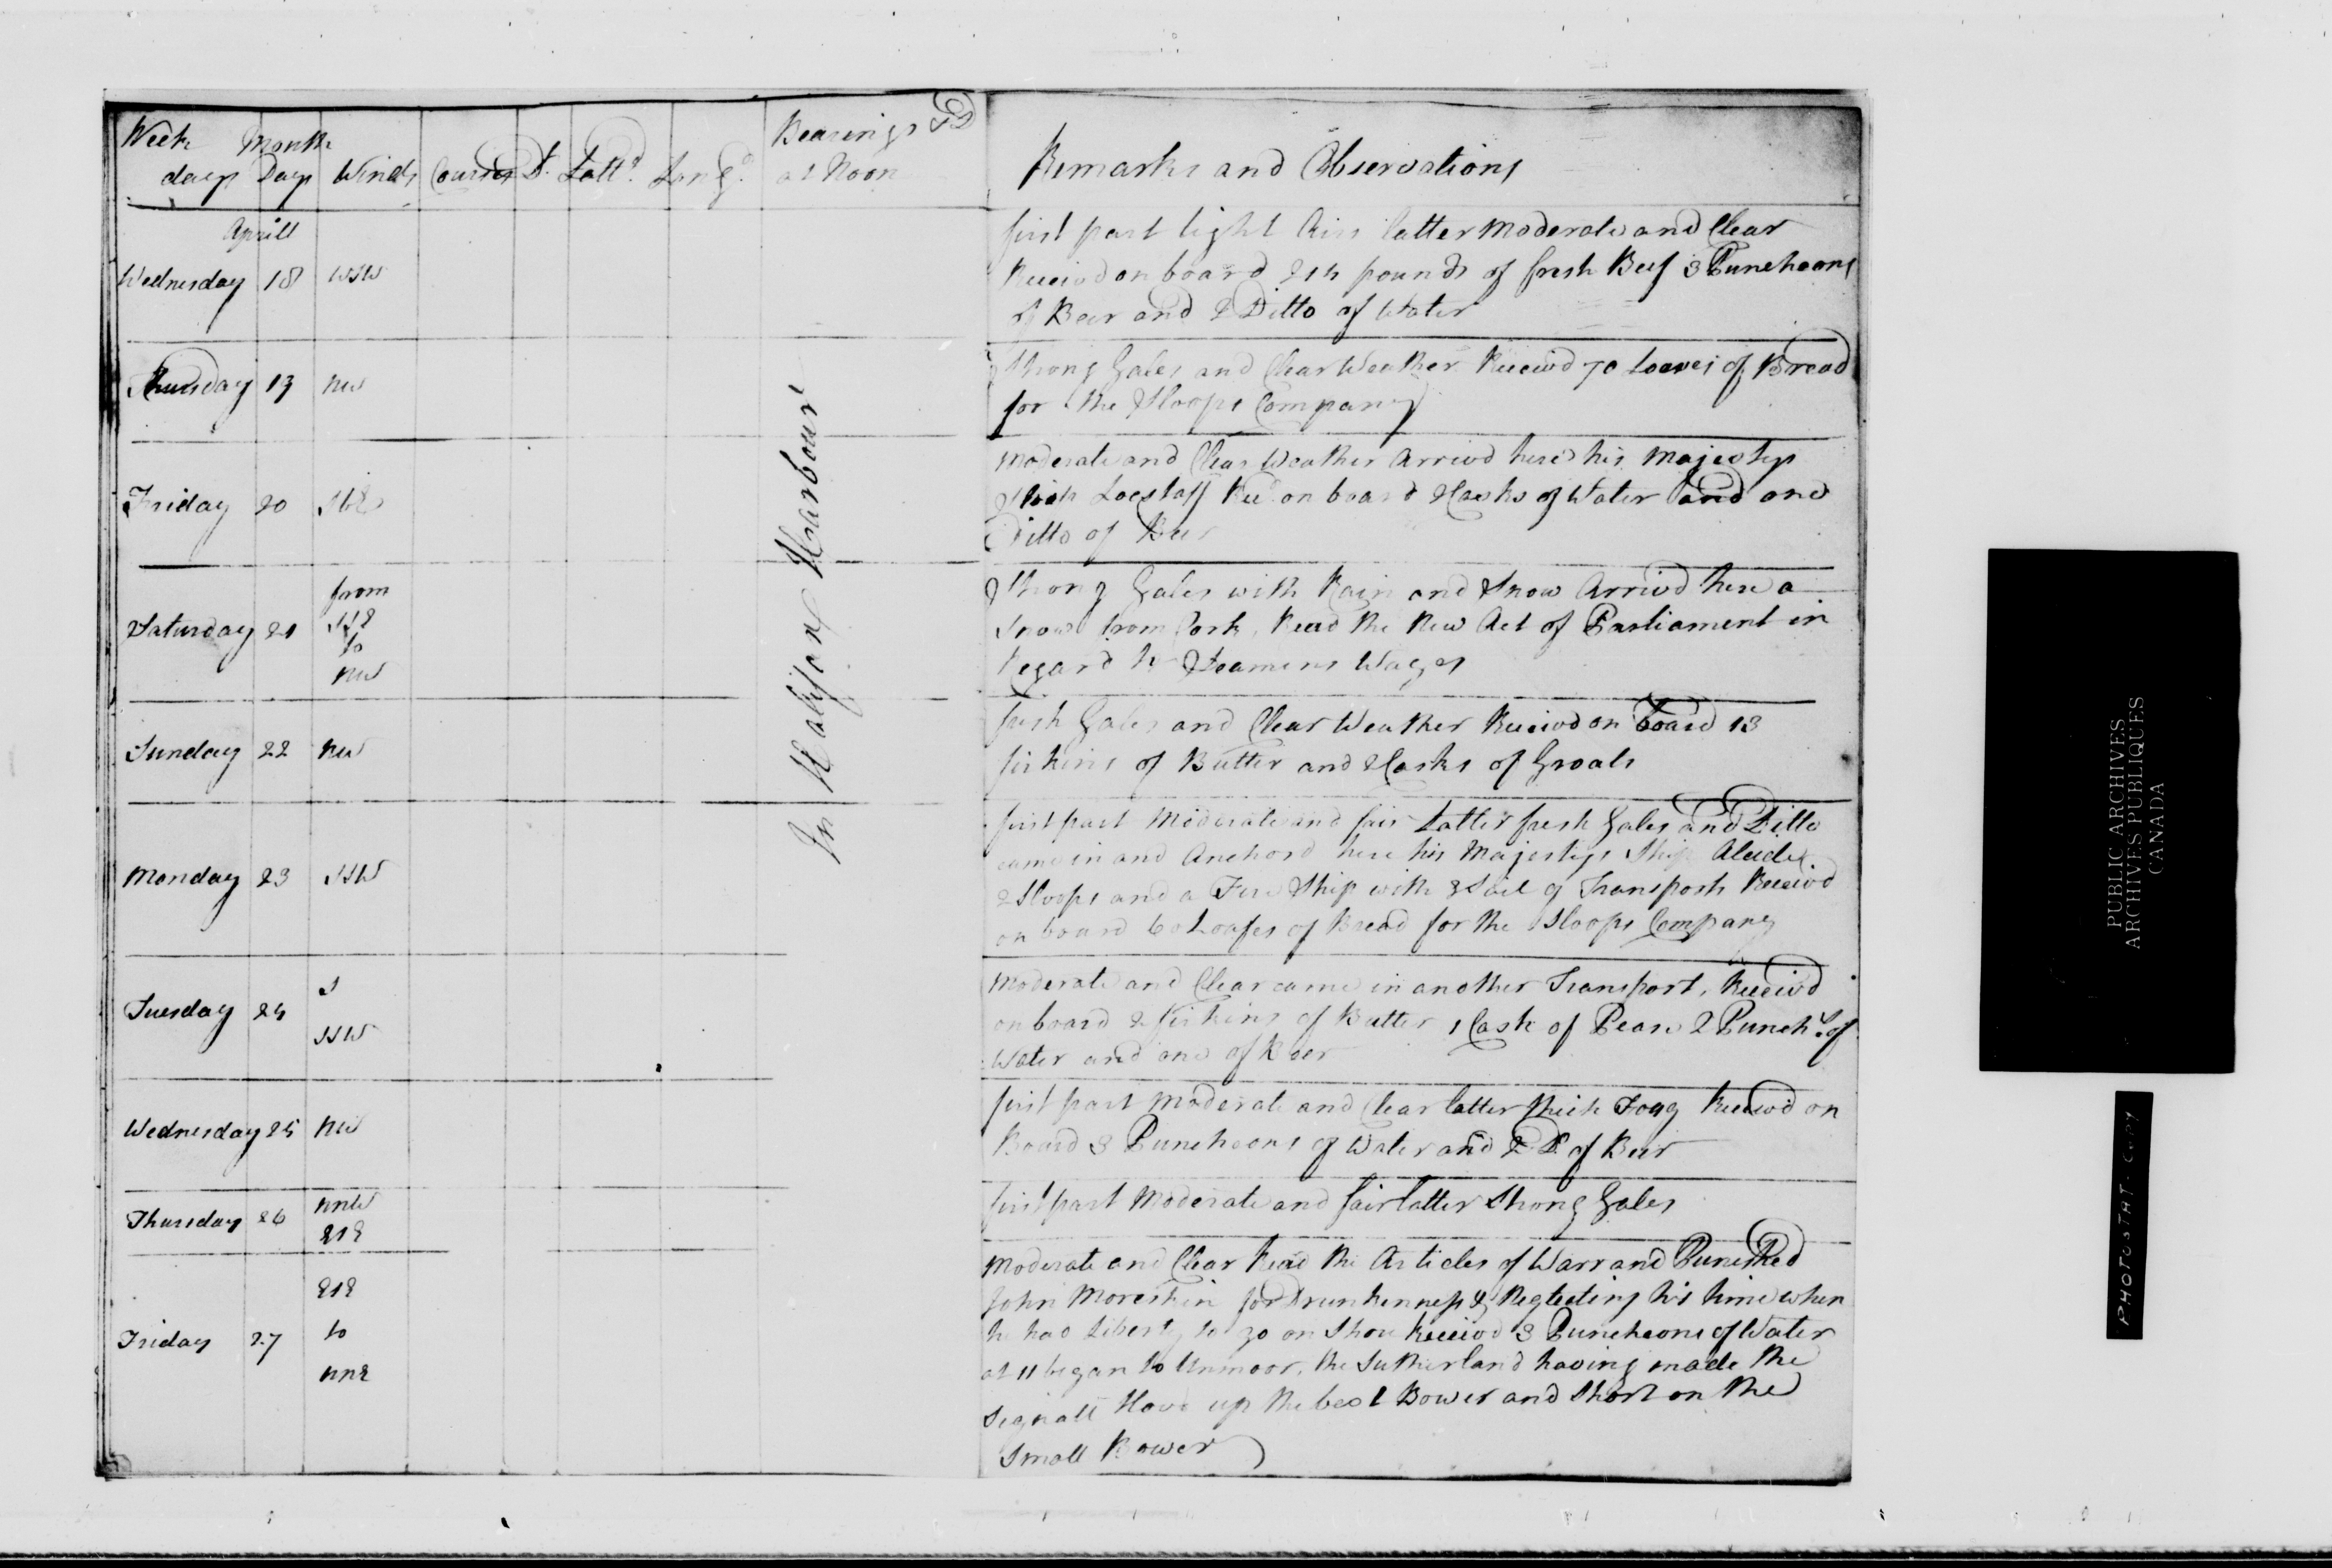 Week Month Bearings &D
days Days Winds Courses D. Lattd. Longd. at Noon
Remarks and Observations
Aprill
In Halifax Harbour
Wednesday 18 WSW
first part light Airs latter Moderate and Clear
Receivd on board 214 pounds of fresh Beef 3 Puncheons
of Beer and 2 Ditto of Water
Thursday 19 NW
Strong Gales and Clear Weather Receivd 70 Loaves of Bread
for the Sloops Company
Friday 20 SbE
Moderate and Clear Weather Arrivd here his Majestys
Loestaff Recd on board 2 Casks of Water and one
Ditto of Beer
Saturday 21 from
SSE
to
NW
Strong Gales with Rain and Snow Arrivd here a
Snow from Cork, Read the New Act of Parliament in
regard to Seamens Wages
Sunday 22 NW
fresh Gales and Clear Weather Receivd on board 13
firkins of Butter and 2 Casks of Groats
Monday 23 SSW
first part Moderate and fair Latter fresh Gales and Ditto
came in and Anchord here his Majestys Ship Alcide
2 Sloops and a Fire Ship with Sail of Transports Receivd
on board 60 Loafes of Bread for the Sloops Company
Tuesday 24 S
SSW
Moderate and Clear came in another Transport, Receivd
on board 2 firkins of Butter 1 Cask of Pease 2 Punchs. of
Water and one of Beer
Wednesday 25 NW
first part Moderate and Clear latter thick Fogg Receivd on
Board 3 Puncheons of Water and 2 Do. of Beer
Thursday 26 NNW
ESE
first part Moderate and fair latter Strong Gales
Friday 27 ESE
to
NNE
Moderate and Clear Read the Articles of Warr and Punished
John for Drunkenness & Neglecting his time when
he had Liberty to go on Shore Receivd 3 Puncheons of Water
at 11 began to Unmoor, the Sutherland having made the
Signall Hove up the best Bower and Short on the
Small Bower
PUBLIC ARCHIVES
ARCHIVES PUBLIQUES
CANADA
PHOTOSTAT COPY